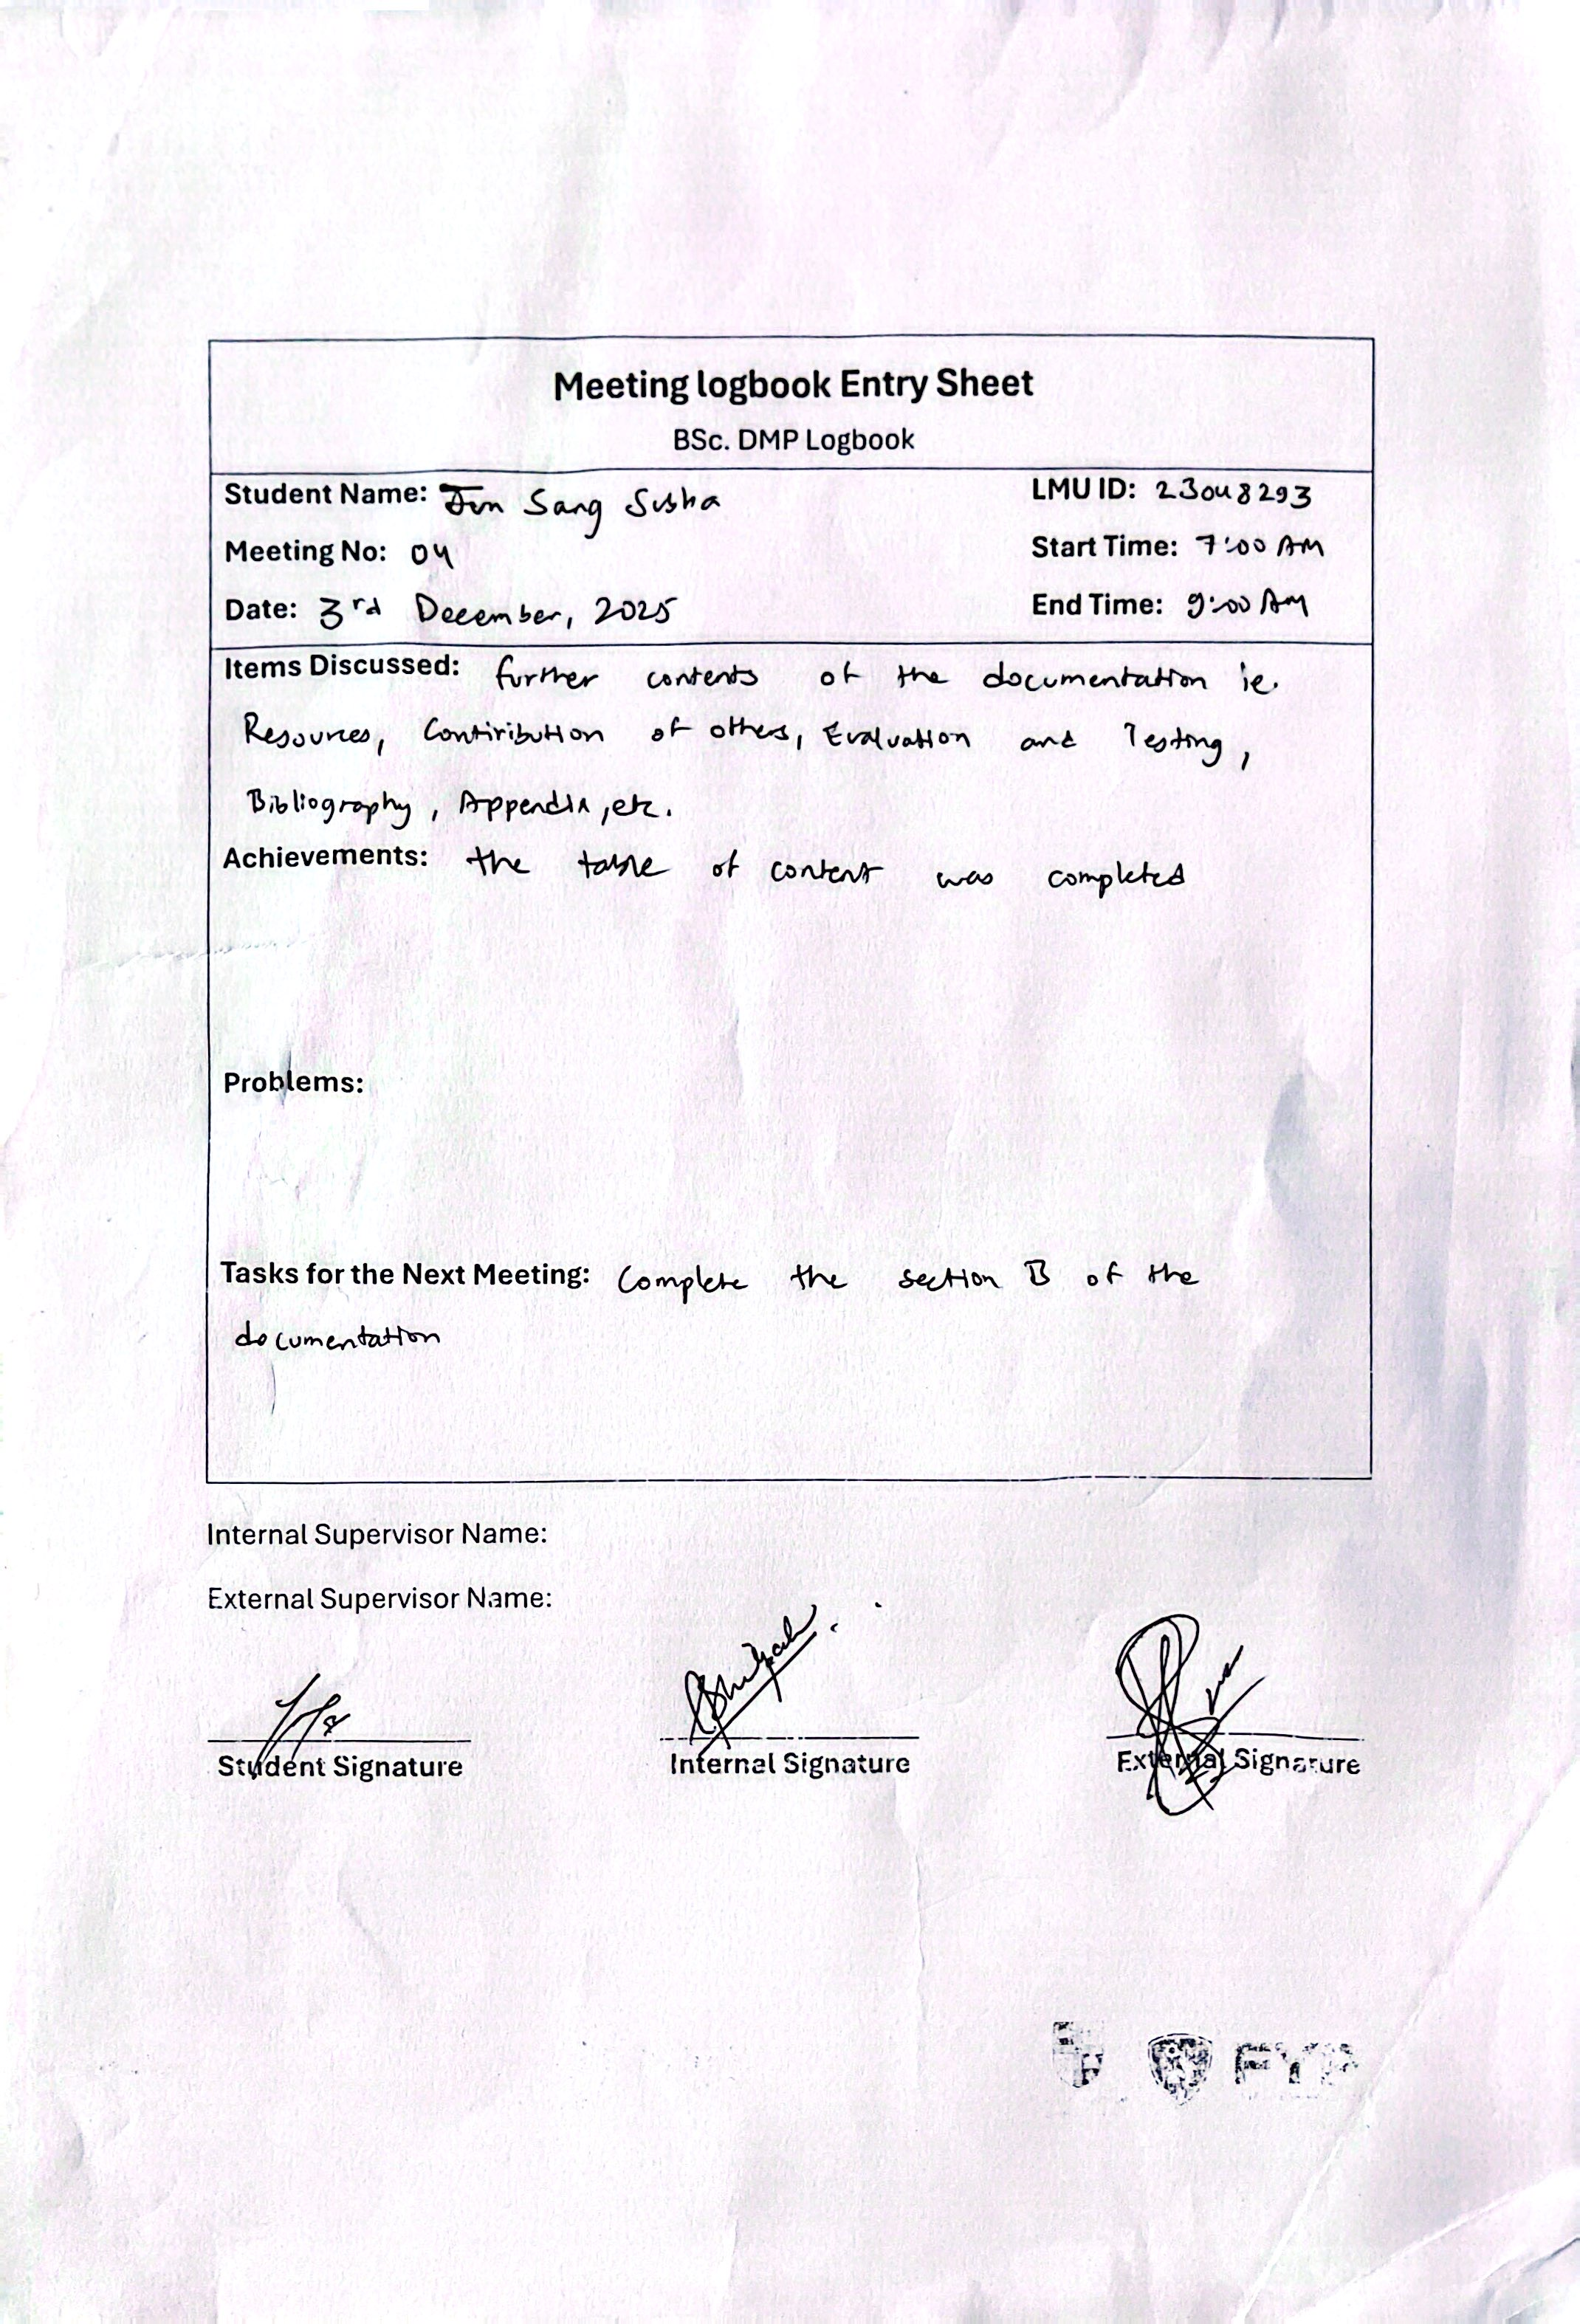 Meeting logbook Entry Sheet
BSc. DMP Logbook
Student Name: Jun Sang Susha LMU ID: 23048293
Meeting No: 04 Start Time: 7:00 AM
Date: 3rd December, 2025 End Time: 9:00 AM
Items Discussed: further contents of the documentation ie.
Resources, Contiribution of others, Evaluation and Testing,
Bibliography, Appendix, etc.
Achievements: the table of content was completed
Problems:
Tasks for the Next Meeting: Complete the section B of the
documentation
Internal Supervisor Name:
External Supervisor Name:
Student Signature Internal Signature External Signature
FYP